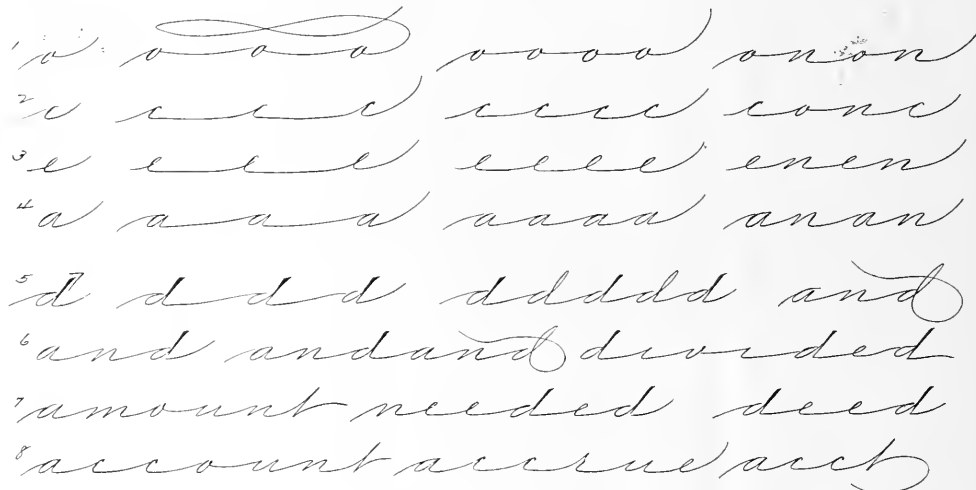 1 o o o o oooo onon
2 c c c c cccc conc
3 e e e e eeee enen
4 a a a a aaaa anan
5 d d d d ddddd and
6 and andand divided
7 amount needed deed
8 account accrue acct